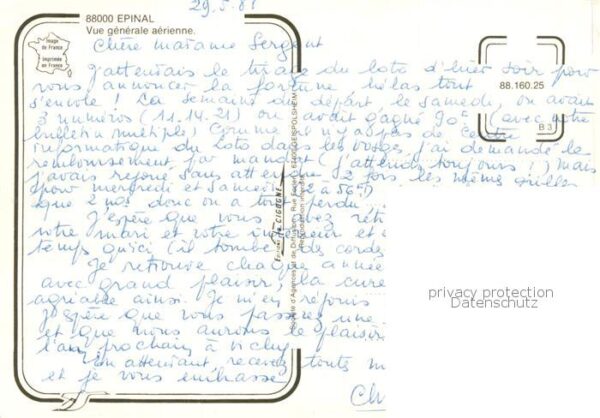 29.5.81
88000 EPINAL
Vue générale aérienne.
Image
de France
Imprimée
en France
Chère madame Sergent
J'attendais le tirage du loto d'hier soir pour
vous annoncer la fortune, hélas tout
s'envole ! La semaine du départ, le samedi, on avait
3 numéros (11.14.21) on avait gagné 90F (avec notre
bulletin multiple) Comme il n'y a pas de Centre
informatique du loto dans les Vosges j'ai demandé le
remboursement par mandat (j'attends toujours !) mais
j'avais rejoué sans attendre 2 fois les mêmes grilles
pour mercredi et samedi à 56F)
que 2 nos donc on a tout perdu
J'espère que vous avez
votre mari et votre intérieur et
temps qu'ici (il tombe des cordes
Je retrouve chaque année
avec grand plaisir, la cure
agréable ainsi. Je m'en réjouis
J'espère que vous passerez une
et que nous aurons le plaisir
l'an prochain à Vichy
En attendant recevez toute m
et je vous embrasse
Ch
88.160.25
B 3
Editions "La CIGOGNE"
Reproduction interdite
privacy protection
Datenschutz